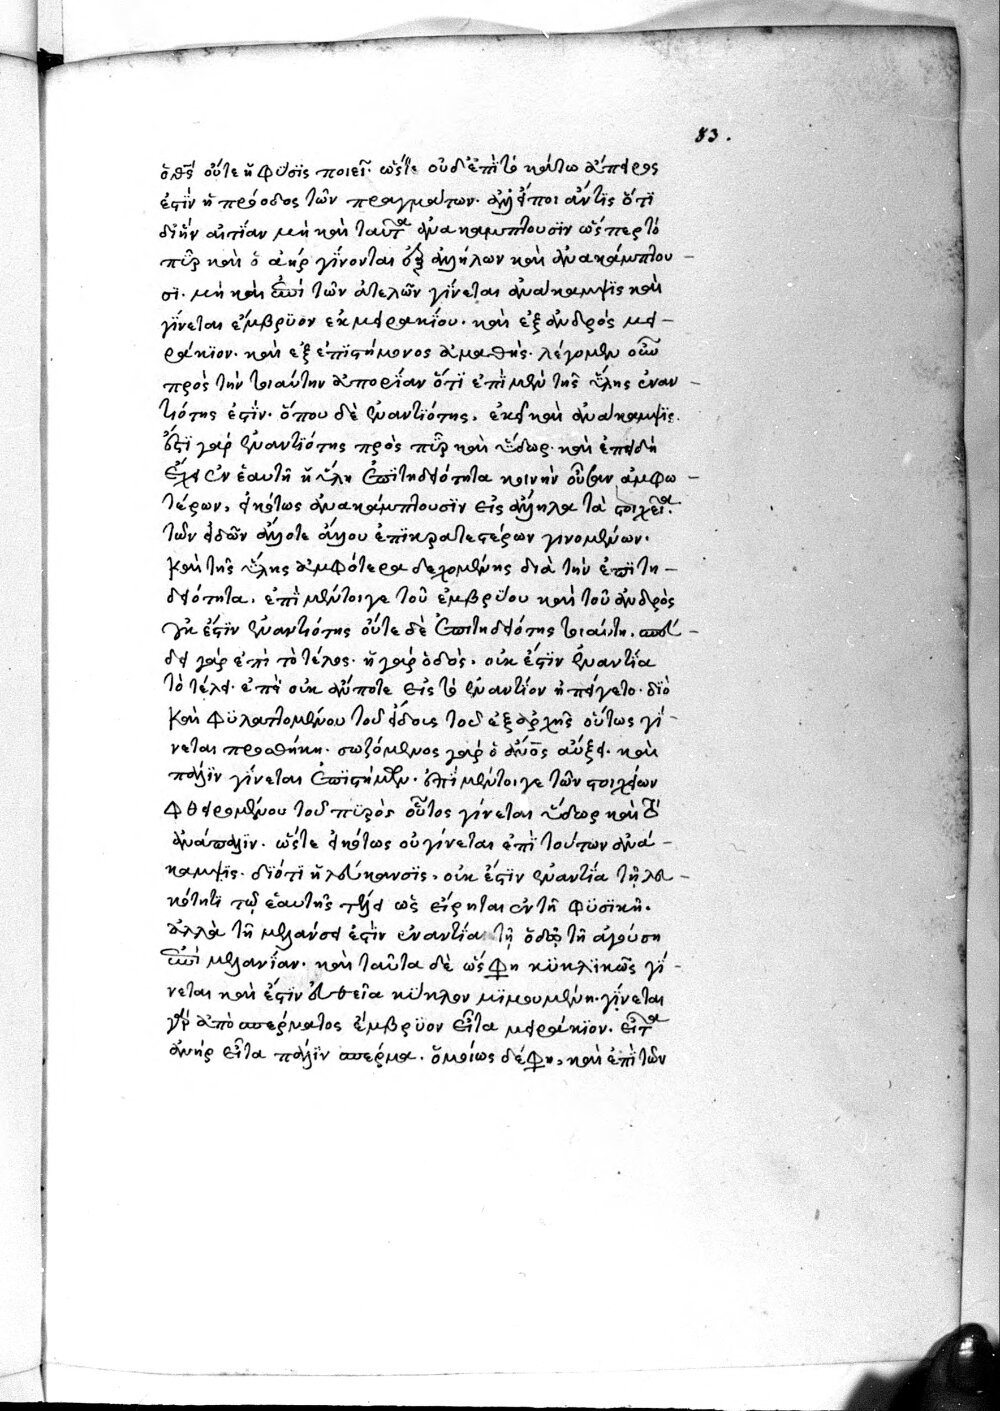 83.
ὁ θεὸς οὔτε ἡ φύσις ποιεῖ· ὥστε οὐδ' ἐπὶ τὸ κάτω ἄπειρος
ἐστὶν ἡ πρόοδος τῶν πραγμάτων· ἀλλ' εἴποι ἄν τις ὅτι
δι' ἣν αἰτίαν μὴ καὶ ταῦτα ἀνακάμπτουσιν ὥσπερ τὸ
πῦρ καὶ ὁ ἀὴρ γίνονται ἐξ ἀλλήλων καὶ ἀνακάμπτου-
σι· μὴ καὶ ἐπὶ τῶν ἀτελῶν γίνεται ἀνάκαμψις καὶ
γίνεται ἔμβρυον ἐκ μειρακίου· καὶ ἐξ ἀνδρὸς μει-
ράκιον· καὶ ἐξ ἐπιστήμονος ἀμαθής· λέγομεν οὖν
πρὸς τὴν τοιαύτην ἀπορίαν ὅτι ἐπὶ μὲν τῆς ὕλης ἐναν-
τιότης ἐστίν· ὅπου δὲ ἐναντιότης, ἐκεῖ καὶ ἀνάκαμψις·
ἔστι γὰρ ἐναντιότης πρὸς πῦρ καὶ ὕδωρ· καὶ ἐπειδὴ
ἔχει ἐν ἑαυτῇ ἡ ὕλη ἐπιτηδειότητα κοινὴν οὖσαν ἀμφο-
τέρων, εἰκότως ἀνακάμπτουσιν εἰς ἄλληλα τὰ στοιχεῖα·
τῶν εἰδῶν ἄλλοτε ἄλλου ἐπικρατεστέρων γινομένων·
καὶ τῆς ὕλης ἀμφότερα δεχομένης διὰ τὴν ἐπιτη-
δειότητα, ἐπὶ μέντοιγε τοῦ ἐμβρύου καὶ τοῦ ἀνδρὸς
οὐκ ἔστιν ἐναντιότης οὔτε δὲ ἐπιτηδειότης τοιαύτη, σπεύ-
δει γὰρ ἐπὶ τὸ τέλος· ἡ γὰρ ὁδὸς, οὐκ ἔστιν ἐναντία
τῷ τέλει· ἐπεὶ οὐκ ἄν ποτε εἰς τὸ ἐναντίον ἠπείγετο· διὸ
καὶ φυλαττομένου τοῦ εἴδους τοῦ ἐξ ἀρχῆς οὕτως γί-
νεται προσθήκη· σωζόμενος γὰρ ὁ ἄνθρωπος αὔξει· καὶ
πάλιν γίνεται ἐπιστήμων· ἐπὶ μέντοιγε τῶν στοιχείων
φθειρομένου τοῦ πυρὸς οὕτως γίνεται ὕδωρ καὶ τὸ
ἀνάπαλιν· ὥστε εἰκότως οὐ γίνεται ἐπὶ τούτων ἀνά-
καμψις· διότι ἡ λεύκανσις, οὐκ ἔστιν ἐναντία τῇ λευ-
κότητι τῷ ἑαυτῆς τέλει ὡς εἴρηται ἐν τῇ φυσικῇ·
ἀλλὰ τῇ μελάνσει ἐστὶν ἐναντία τῇ ὁδῷ τῇ ἀγούσῃ
ἐπὶ μελανίαν· καὶ ταῦτα δὲ ὥς φησι κυκλικῶς γί-
νεται καὶ ἔστιν εὐθεῖα κύκλον μιμουμένη· γίνεται
γὰρ ἀπὸ σπέρματος ἔμβρυον εἶτα μειράκιον· εἶτα
ἀνὴρ εἶτα πάλιν σπέρμα· ὁμοίως δέ φησι, καὶ ἐπὶ τῶν